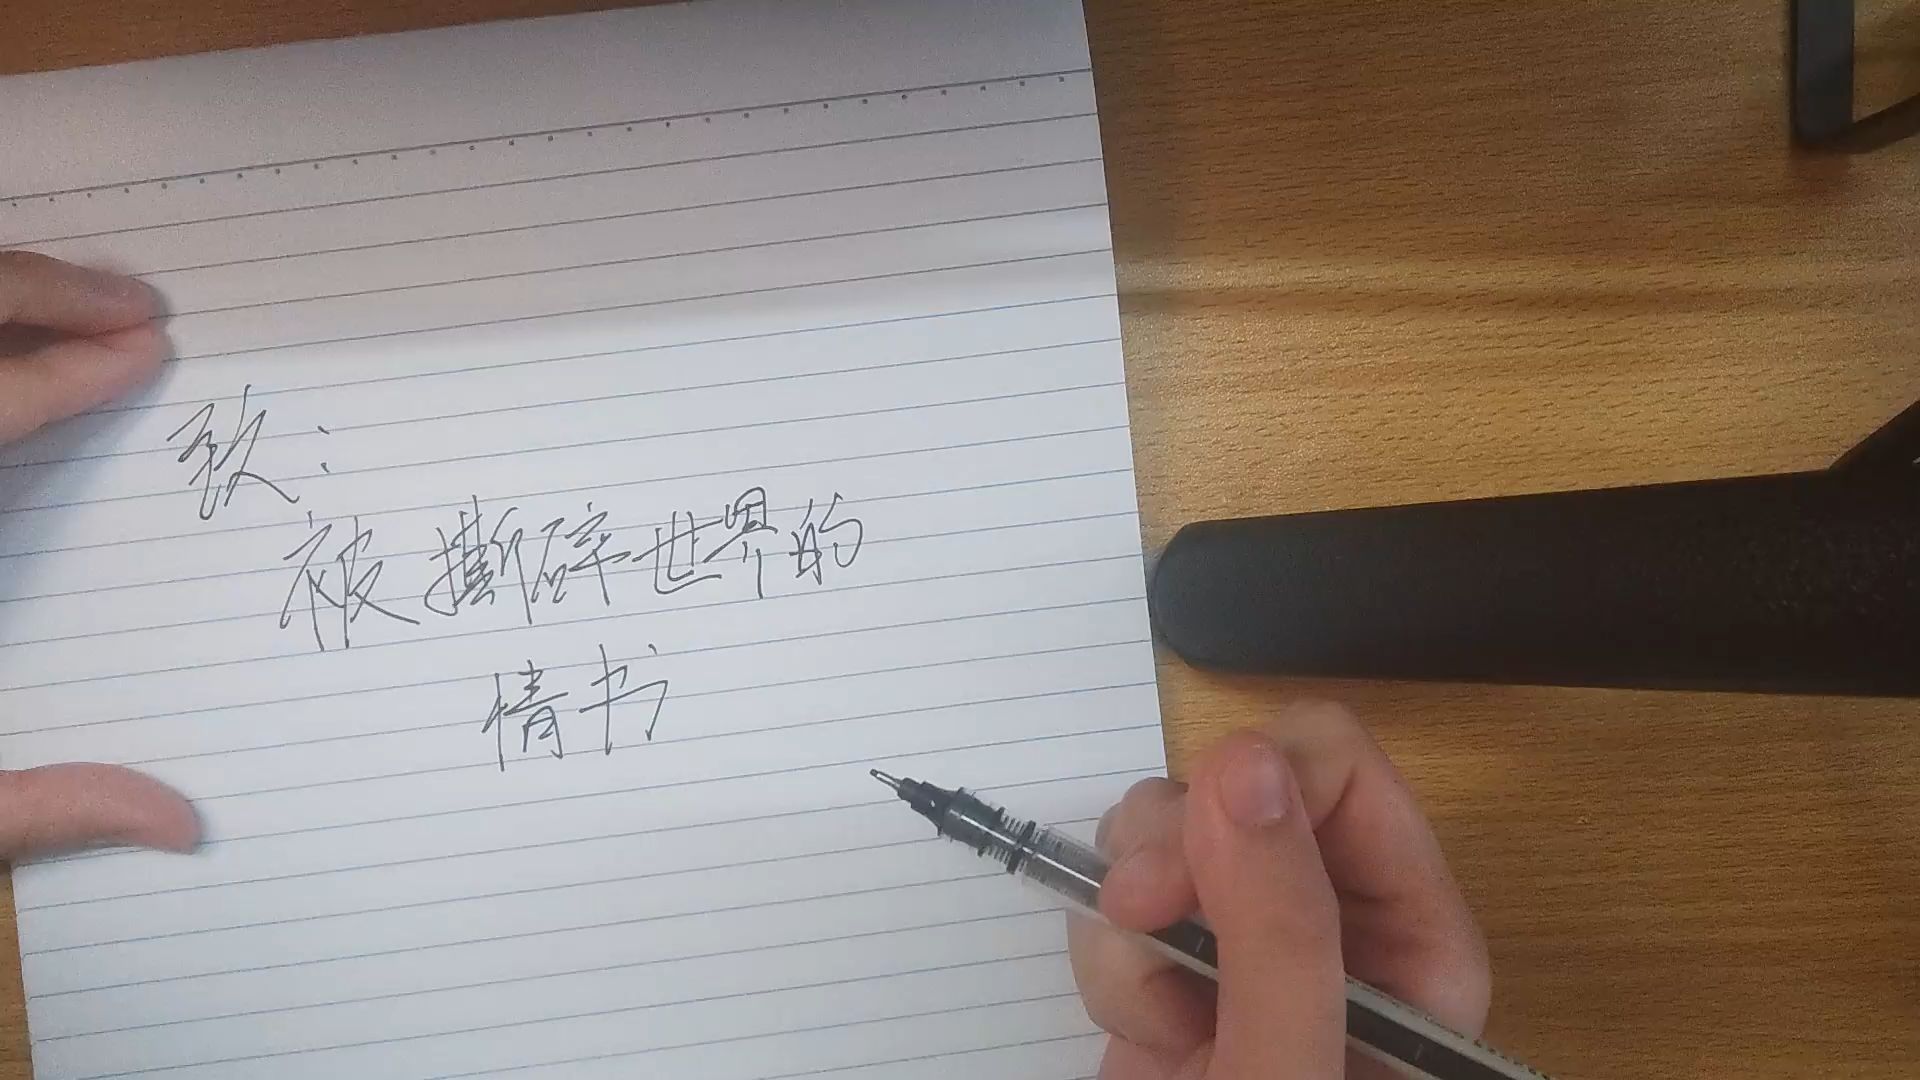 致：
被撕碎世界的
情书